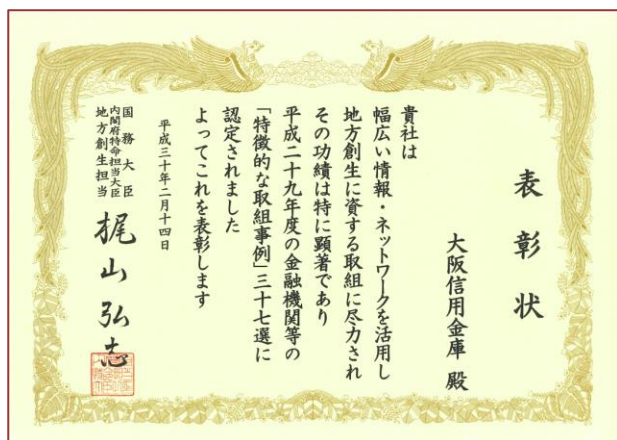 表彰状
大阪信用金庫 殿
貴社は
幅広い情報・ネットワークを活用し
地方創生に資する取組に尽力され
その功績は特に顕著であり
平成二十九年度の金融機関等の
「特徴的な取組事例」三十七選に
認定されました
よってこれを表彰します
平成三十年二月十四日
国務大臣
内閣府特命担当大臣
地方創生担当
梶山弘志